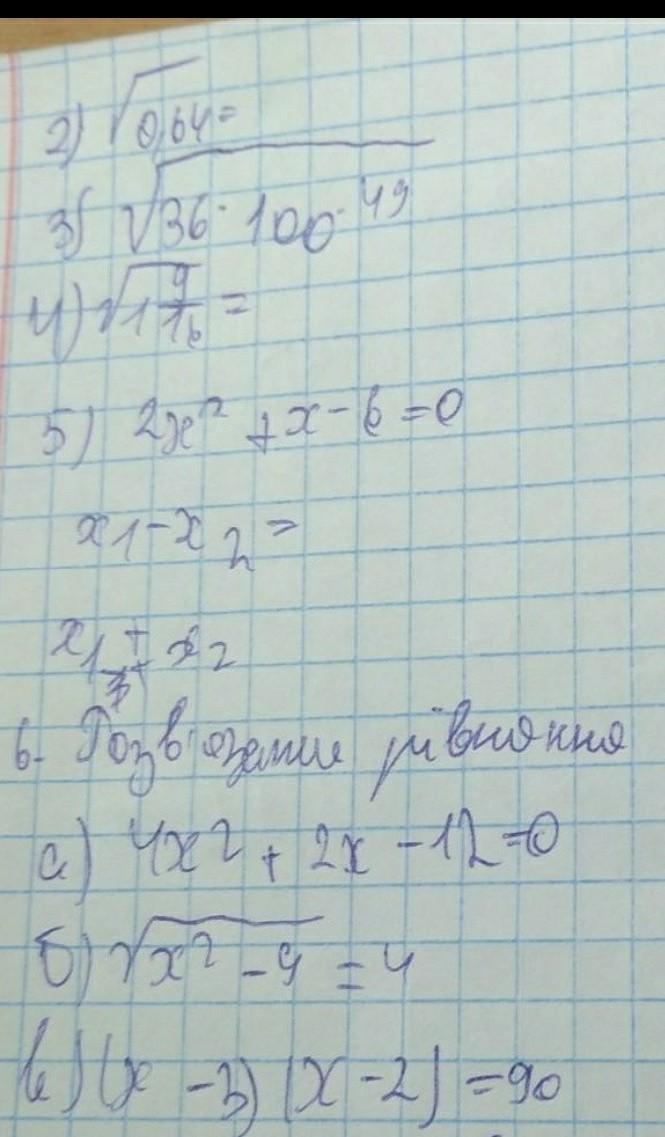 2) √0,64 =
3) √36 · 100 · 49
4) √1 9/16 =
5) 2x² + x - 6 = 0
x₁ - x₂ =
x₁ + x₂
6. Розвязати рівняння
а) 4x² + 2x - 12 = 0
б) √x² - 9 = 4
в) (x - 3) (x - 2) = 90